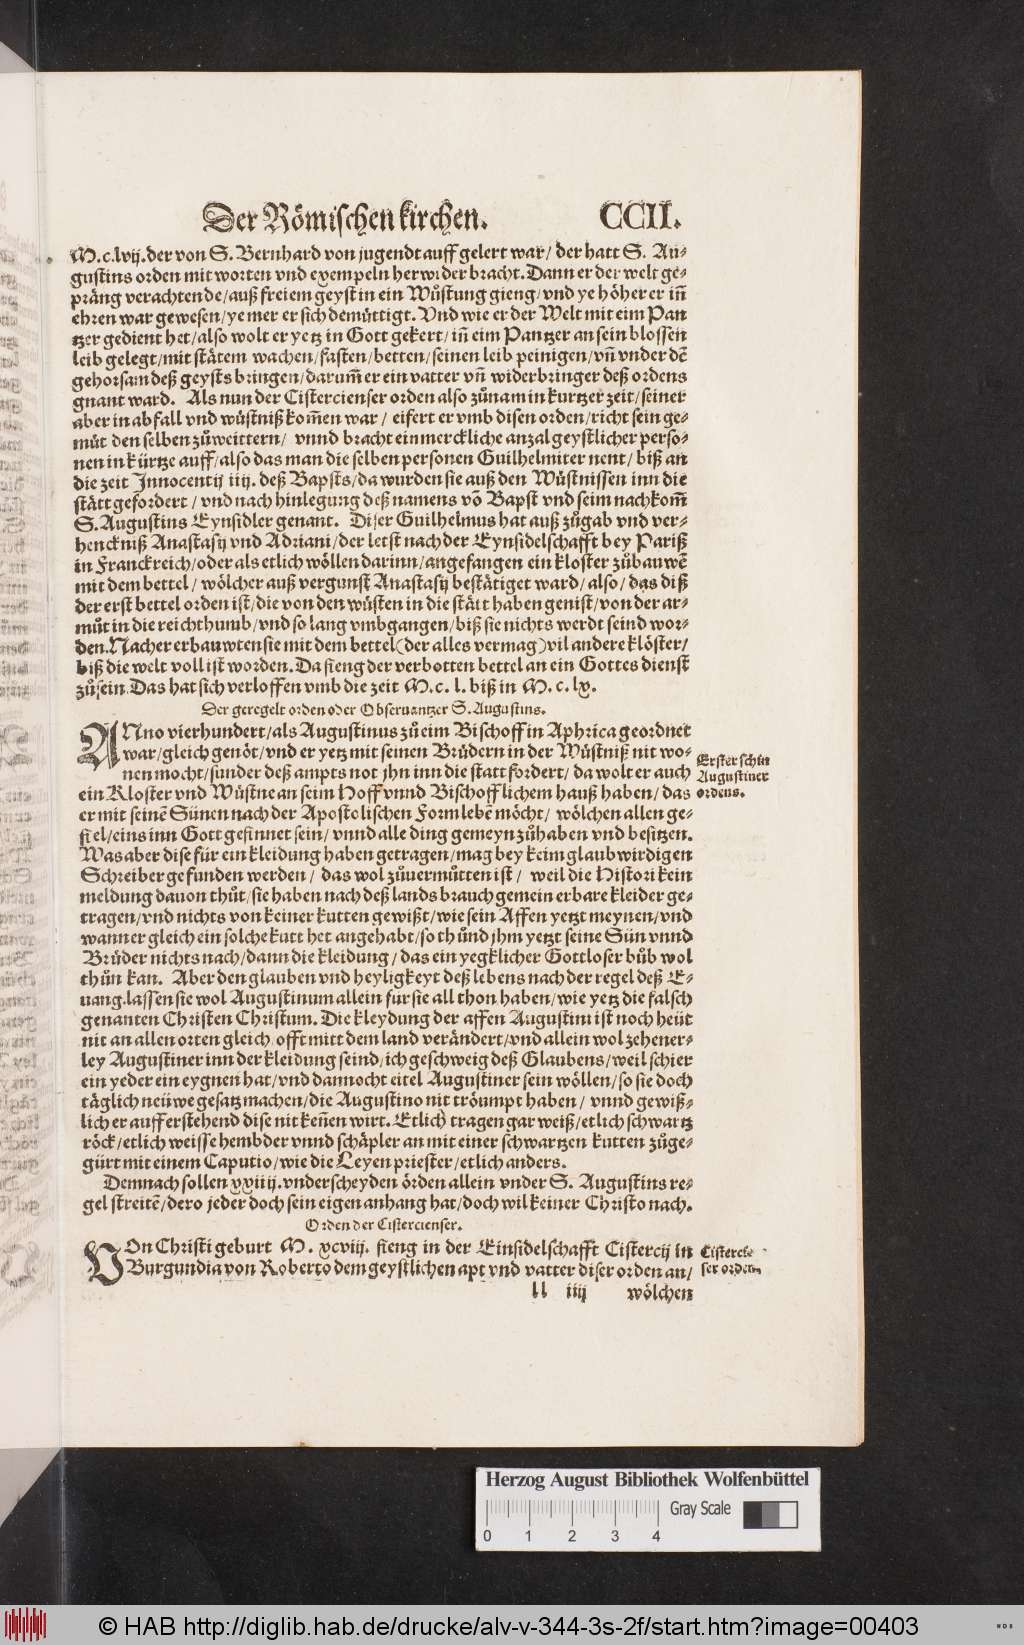 Der Römischen kirchen. CCII.
M.c.lvij.der von S. Bernhard von jugendt auff gelert war/ der hatt S. Au-
gustins orden mit worten vnd exempeln herwider bracht. Dann er der welt ge-
präng verachtende/auß freiem geyst in ein Wůstung gieng/vnd ye höher er iñ
ehren war gewesen/ye mer er sich demůttigt. Vnd wie er der Welt mit eim Pan
tzer gedient het/also wolt er yetz in Gott gekert/iñ eim Pantzer an sein blossen
leib gelegt/mit stätem wachen/fasten/betten/seinen leib peinigen/vñ vnder dē
gehorsam deß geysts bringen/darum̃ er ein vatter vñ widerbringer deß ordens
gnant ward. Als nun der Cistercienser orden also zůnam in kurtzer zeit/seiner
aber in abfall vnd wůstniß kom̃en war/ eifert er vmb disen orden/richt sein ge-
můt den selben zůweittern/ vnnd bracht ein merckliche anzal geystlicher perso-
nen in kürtze auff/also das man die selben personen Guilhelmiter nent/ biß an
die zeit Innocentij iiij. deß Bapsts/da wurden sie auß den Wůstnissen inn die
stätt gefordert/ vnd nach hinlegung deß namens võ Bapst vnd seim nachkom̃
S. Augustins Eynsidler genant. Diser Guilhelmus hat auß zůgab vnd ver-
henckniß Anastasij vnd Adriani/der letst nach der Eynsidelschafft bey Pariß
in Franckreich/oder als etlich wöllen darinn/angefangen ein kloster zůbauwē
mit dem bettel/ wölcher auß vergunst Anastasij bestätiget ward/also/ das diß
der erst bettel orden ist/die von den wůsten in die stätt haben genist/von der ar-
můt in die reichthumb/vnd so lang vmbgangen/biß sie nichts werdt seind wor-
den. Nacher erbauwten sie mit dem bettel(der alles vermag)vil andere klöster/
biß die welt voll ist worden. Da fieng der verbotten bettel an ein Gottes dienst
zůsein. Das hat sich verloffen vmb die zeit M.c.l. biß in M.c.lx.
Der geregelt orden oder Obseruantzer S. Augustins.
ANno vierhundert/als Augustinus zů eim Bischoff in Aphrica geordnet
war/gleich genöt/vnd er yetz mit seinen Brůdern in der Wůstniß nit wo-
nen mocht/sunder deß ampts not jhn inn die statt fordert/ da wolt er auch
ein Kloster vnd Wůstne an seim Hoff vnnd Bischofflichem hauß haben/das
er mit seinē Sünen nach der Apostolischen Form lebē möcht/ wölchen allen ge-
fiel/eins inn Gott gesinnet sein/vnnd alle ding gemeyn zůhaben vnd besitzen.
Was aber dise für ein kleidung haben getragen/mag bey keim glaubwirdigen
Schreiber gefunden werden/ das wol zůvermůtten ist/ weil die Histori kein
meldung dauon thůt/sie haben nach deß lands brauch gemein erbare kleider ge-
tragen/vnd nichts von keiner kutten gewißt/wie sein Affen yetzt meynen/vnd
wann er gleich ein solche kutt het angehabt/so thůnd jhm yetzt seine Sün vnnd
Brůder nichts nach/dann die kleidung/das ein yegklicher Gottloser bůb wol
thůn kan. Aber den glauben vnd heyligkeyt deß lebens nach der regel deß E-
uang.lassen sie wol Augustinum allein für sie all thon haben/wie yetz die falsch
genanten Christen Christum. Die kleydung der affen Augustini ist noch heüt
nit an allen orten gleich/offt mitt dem land verändert/vnd allein wol zehener-
ley Augustiner inn der kleidung seind/ich geschweig deß Glaubens/weil schier
ein yeder ein eygnen hat/vnd dannocht eitel Augustiner sein wöllen/so sie doch
täglich neüwe gesatz machen/die Augustino nit tröumpt haben/ vnnd gewiß-
lich er aufferstehend dise nit keñen wirt. Etlich tragen gar weiß/etlich schwartz
röck/etlich weisse hembder vnnd schäpler an mit einer schwartzen kutten zůge-
gürt mit einem Caputio/wie die Leyen priester/etlich anders.
Demnach sollen xxiiij.vnderscheyden örden allein vnder S. Augustins re-
gel streitē/dero jeder doch sein eigen anhang hat/doch wil keiner Christo nach.
Erster schin
Augustiner
ordens.
Orden der Cistercienser.
VOn Christi geburt M. xcviij. fieng in der Einsidelschafft Cistercij in
Burgundia von Roberto dem geystlichen apt vnd vatter diser orden an/
Cistercie
ser orden
ll iiij wölchen
Herzog August Bibliothek Wolfenbüttel
Gray Scale
0 1 2 3 4
© HAB http://diglib.hab.de/drucke/alv-v-344-3s-2f/start.htm?image=00403